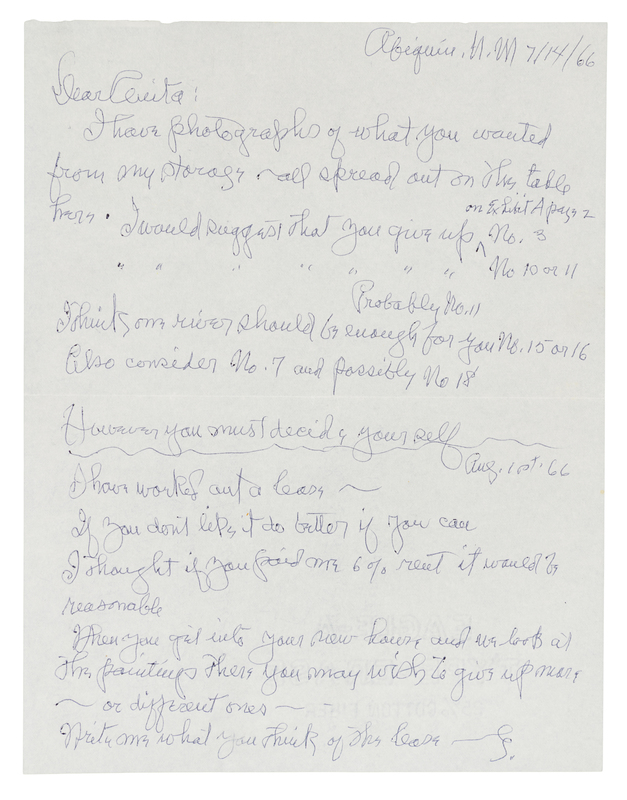 Abiquiu, N.M 7/14/66
Dear Anita:
I have photographs of what you wanted
from my storage ~ all spread out on the table
here. I would suggest that you give up ^ on Exhibit A page 2 No. 3
" " " " " " " No 10 or 11
Probably No. 11
I think one river should be enough for you No. 15 or 16
Also consider No. 7 and possibly No 18
However you must decide yourself
Aug. 1st. 66
I have worked out a lease ~
If you dont like it do better if you can
I thought if you paid me 6% rent it would be
reasonable
When you get into your new house and we look at
the paintings there you may wish to give up more
~ or different ones ~
Write me what you think of the lease — G.